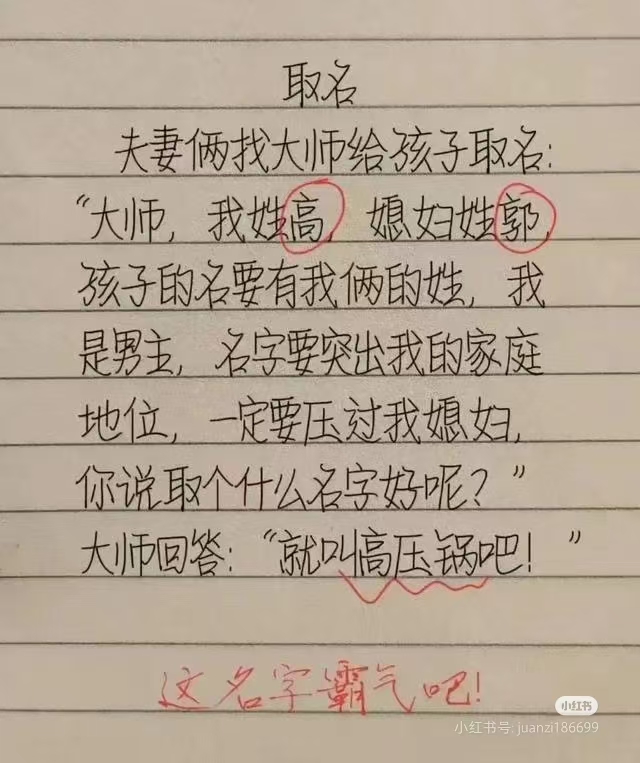 取名
夫妻俩找大师给孩子取名：
“大师，我姓高，媳妇姓郭，
孩子的名要有我俩的姓，我
是男主，名字要突出我的家庭
地位，一定要压过我媳妇，
你说取个什么名字好呢？”
大师回答：“就叫高压锅吧！”
这名字霸气吧！
小红书
小红书号: juanzi186699